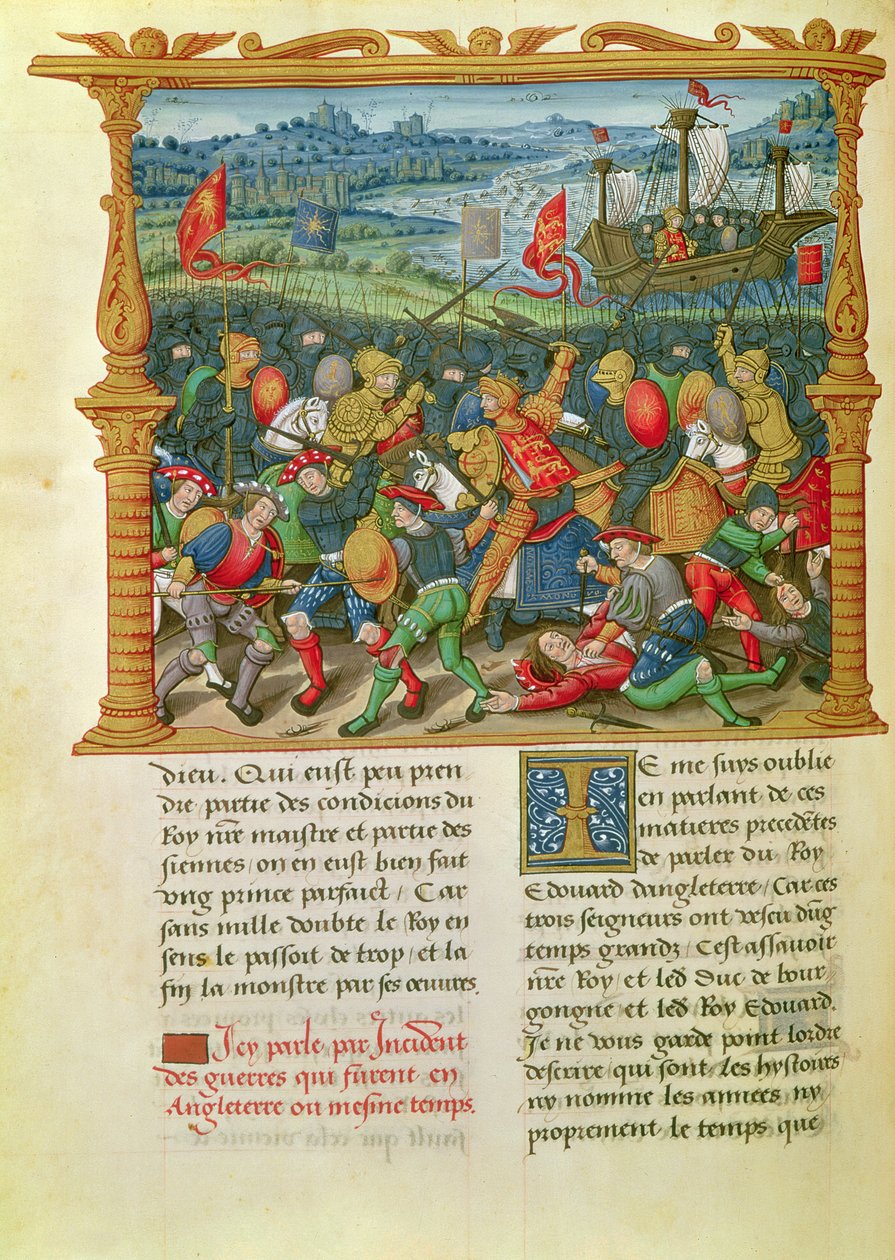 dieu. Qui eust peu pren
dre partie des condicions du
Roy nr̃e maistre et partie des
siennes / on en eust bien fait
vng prince parfaict / Car
sans nulle doubte le Roy en
sens le passoit de trop / et la
fin la monstre par ses œuvres.
Icy parle par Incident
des guerres qui furent en
Angleterre ou mesme temps.
IE me suys oublie
en parlant de ces
matieres precedẽtes
de parler du Roy
Edouard dangleterre / Car ces
trois seigneurs ont vescu dũg
temps grandz / Cest assavoir
nr̃e Roy / et led Duc de bour
gongne et led Roy Edouard.
Je ne vous garde point lordre
descrire / qui sont les hystoires
ny nomme les annees ny
proprement le temps que